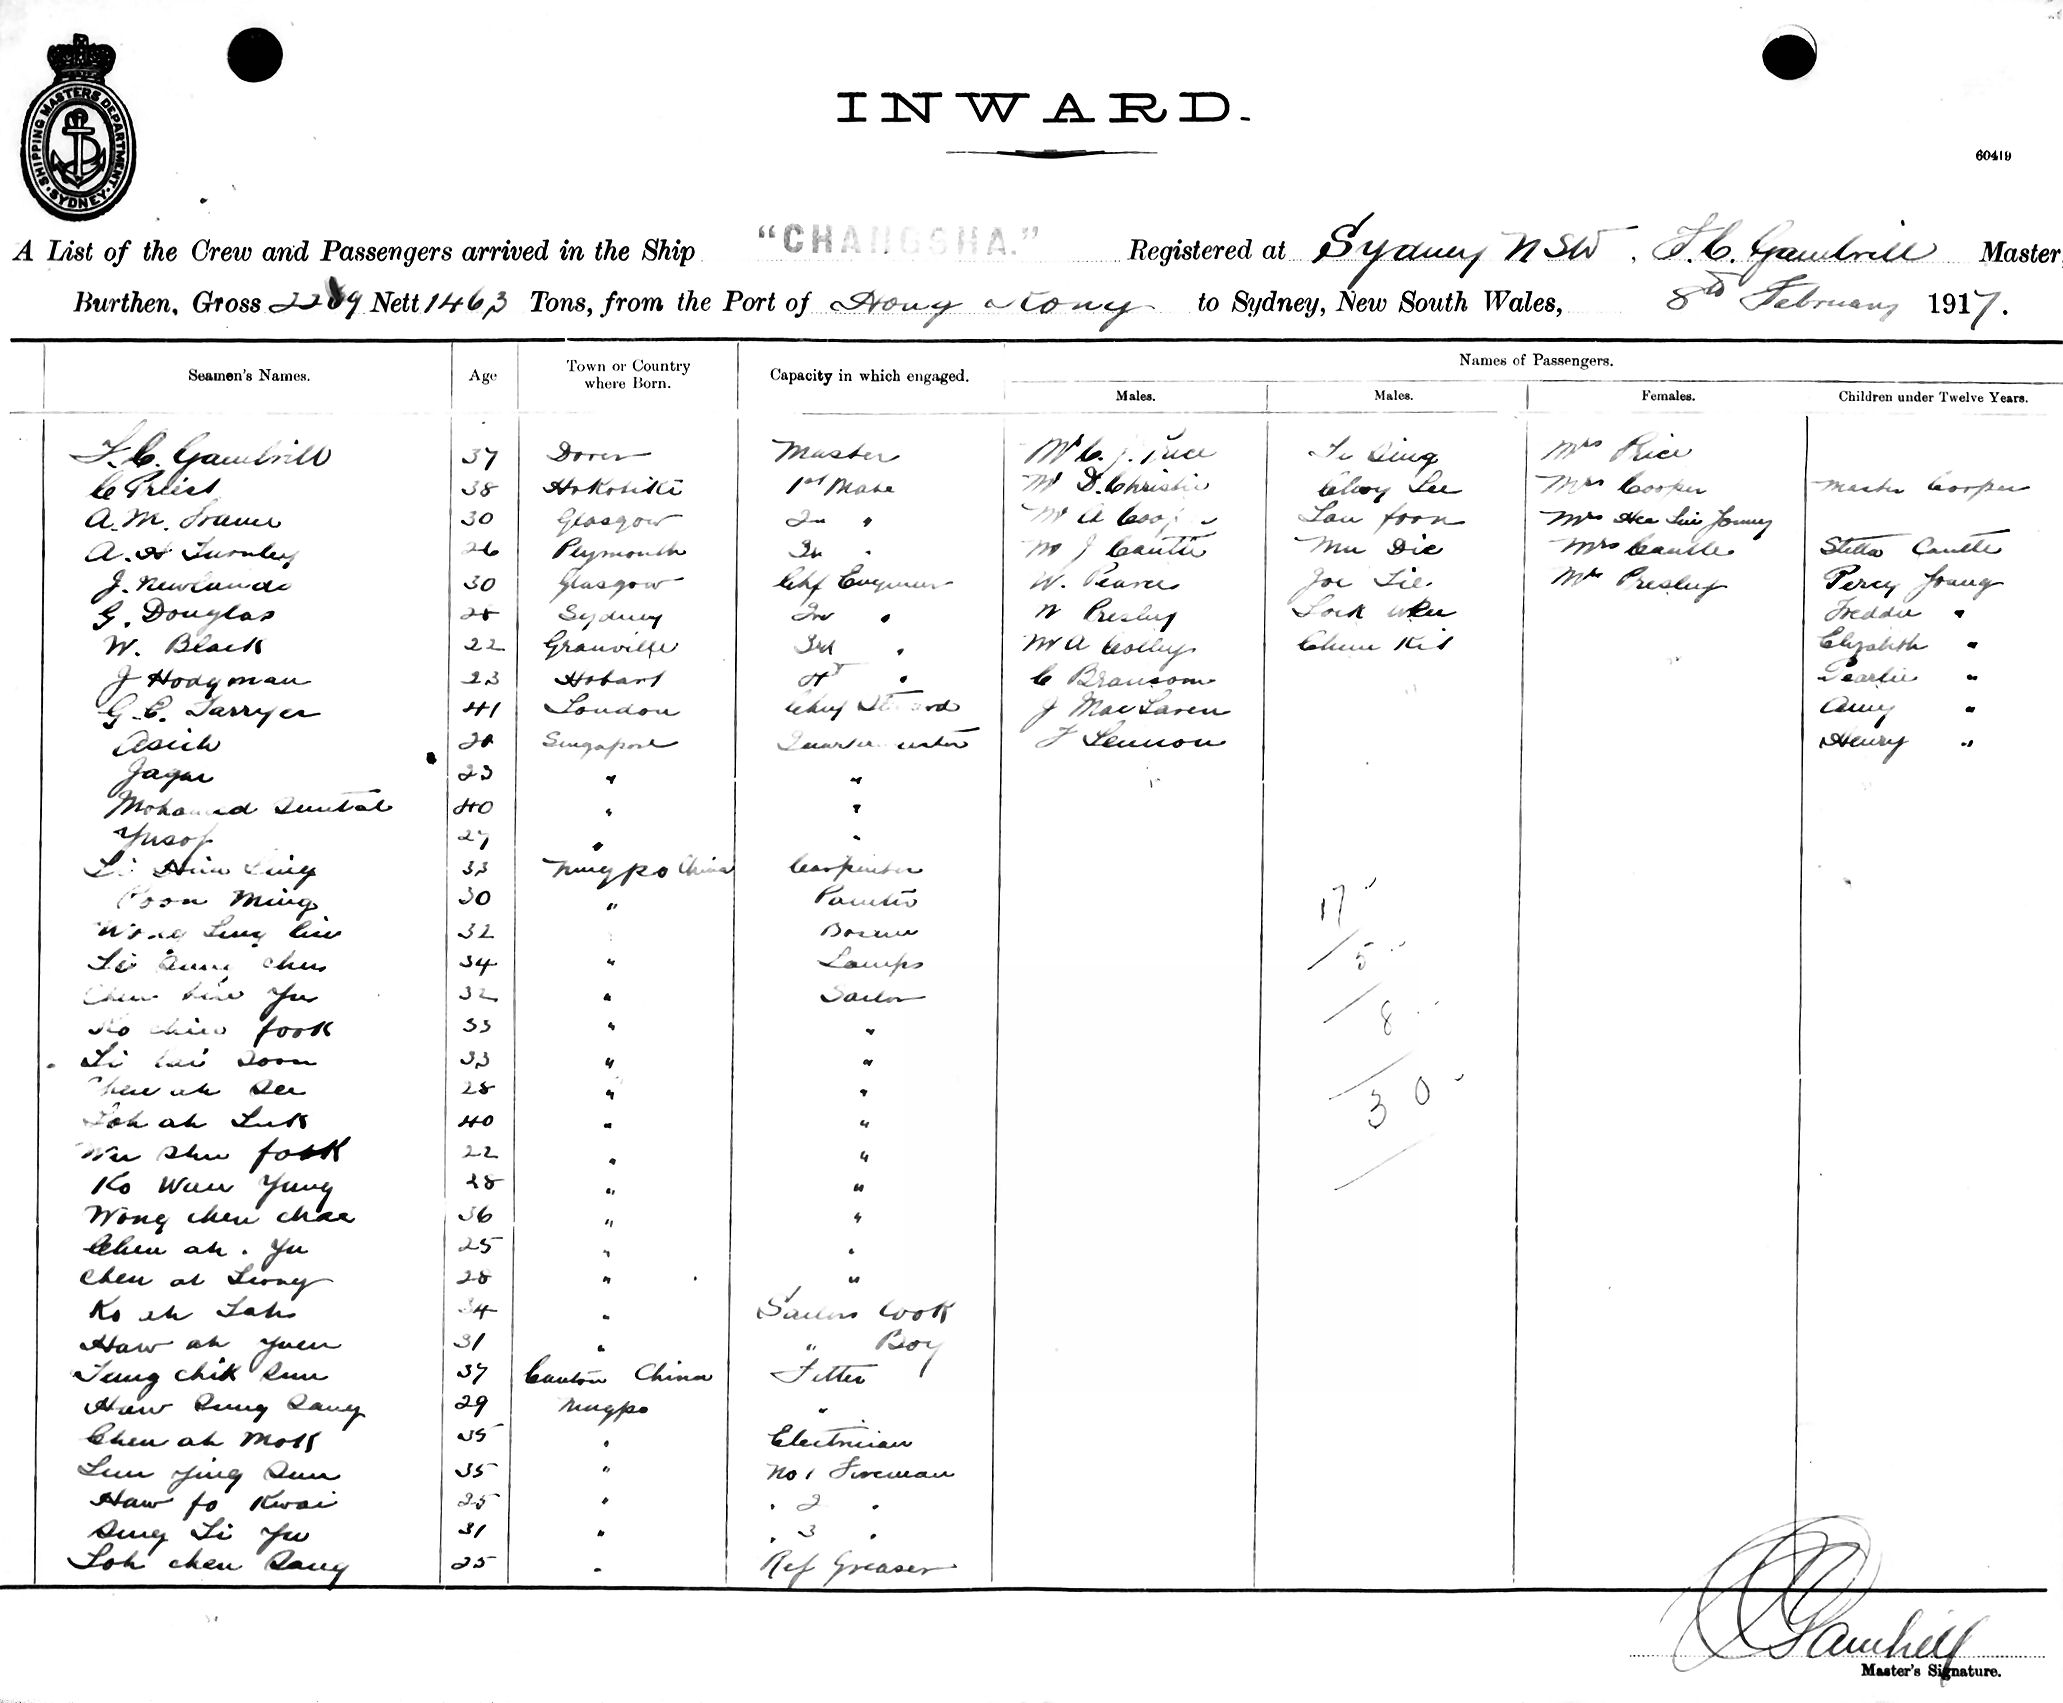 SHIPPING MASTERS DEPARTMENT SYDNEY
INWARD.
60419
A List of the Crew and Passengers arrived in the Ship "CHANGSHA." Registered at Sydney NSW. F. C. Gambrill Master
Burthen, Gross 2269 Nett 1463 Tons, from the Port of Hong Kong to Sydney, New South Wales, 8th February 1917.
Seamen's Names. Age Town or Country where Born. Capacity in which engaged. Names of Passengers.
Males. Males. Females. Children under Twelve Years.
F. C. Gambrill 37 Dover Master Mr C. J. Rice Mrs Rice
C Priest 38 Hokotiki 1st Mate Mr D. Christie Choy See Mrs Cooper Master Cooper
A. M. 30 Glasgow 2n " Mr A Coop Lau foon Mrs Hee Sin Young
A. H Turnley 26 Plymouth 3n " Mr J Cantle Mu Dic Mrs Cantle Stella Cantle
J. Newlands 30 Glasgow Chf Engineer W. Pearce Joe Tie Mrs Presley Percy Young
G. Douglas 28 Sydney 2nd " W Presley Sock Freddie "
W. Black 22 Granville 3rd " Mr A Colley Chun Kit Elizabeth "
J Hodgman 23 Hobart 4th " C Bransom Pearlie "
G. C. Tarryer 41 London Chief Steward J MacLaren Amy "
Asich 28 Singapore Quartermaster F Lennon Henry "
Jagar 23 " "
Mohamed 40 " "
Yusof 27 " "
Li Ling 33 Ningpo China Carpenter
Poon Ming 30 " Painter 17
Wong Sung 32 Bosun
Li Sung chu 34 " Lamps 5
Chen Yu 32 " Sailor 8
Ko chin fook 33 " "
Li Soon 33 " "
Chen ah See 28 " " 30
Loh ah Luk 40 " "
Wu Shu fook 22 " "
Ko Wan Yung 28 " "
Wong chen chae 36 " "
Chen ah. Yu 25 " "
Chen ah Leong 28 " "
Ko ah Lah 34 " Sailors Cook
Haw ah Yuen 31 " " Boy
Tung chik Sun 37 Canton China Fitter
Haw Sung Sang 29 Ningpo "
Chen ah Mok 35 " Electrician
Lun Ying Sun 35 " No 1 Fireman
Haw fo Kwai 25 " " 2 "
Sung Li Yu 31 " " 3 "
Loh chen Sang 25 " Ref Greaser
Gambrill
Master's Signature.